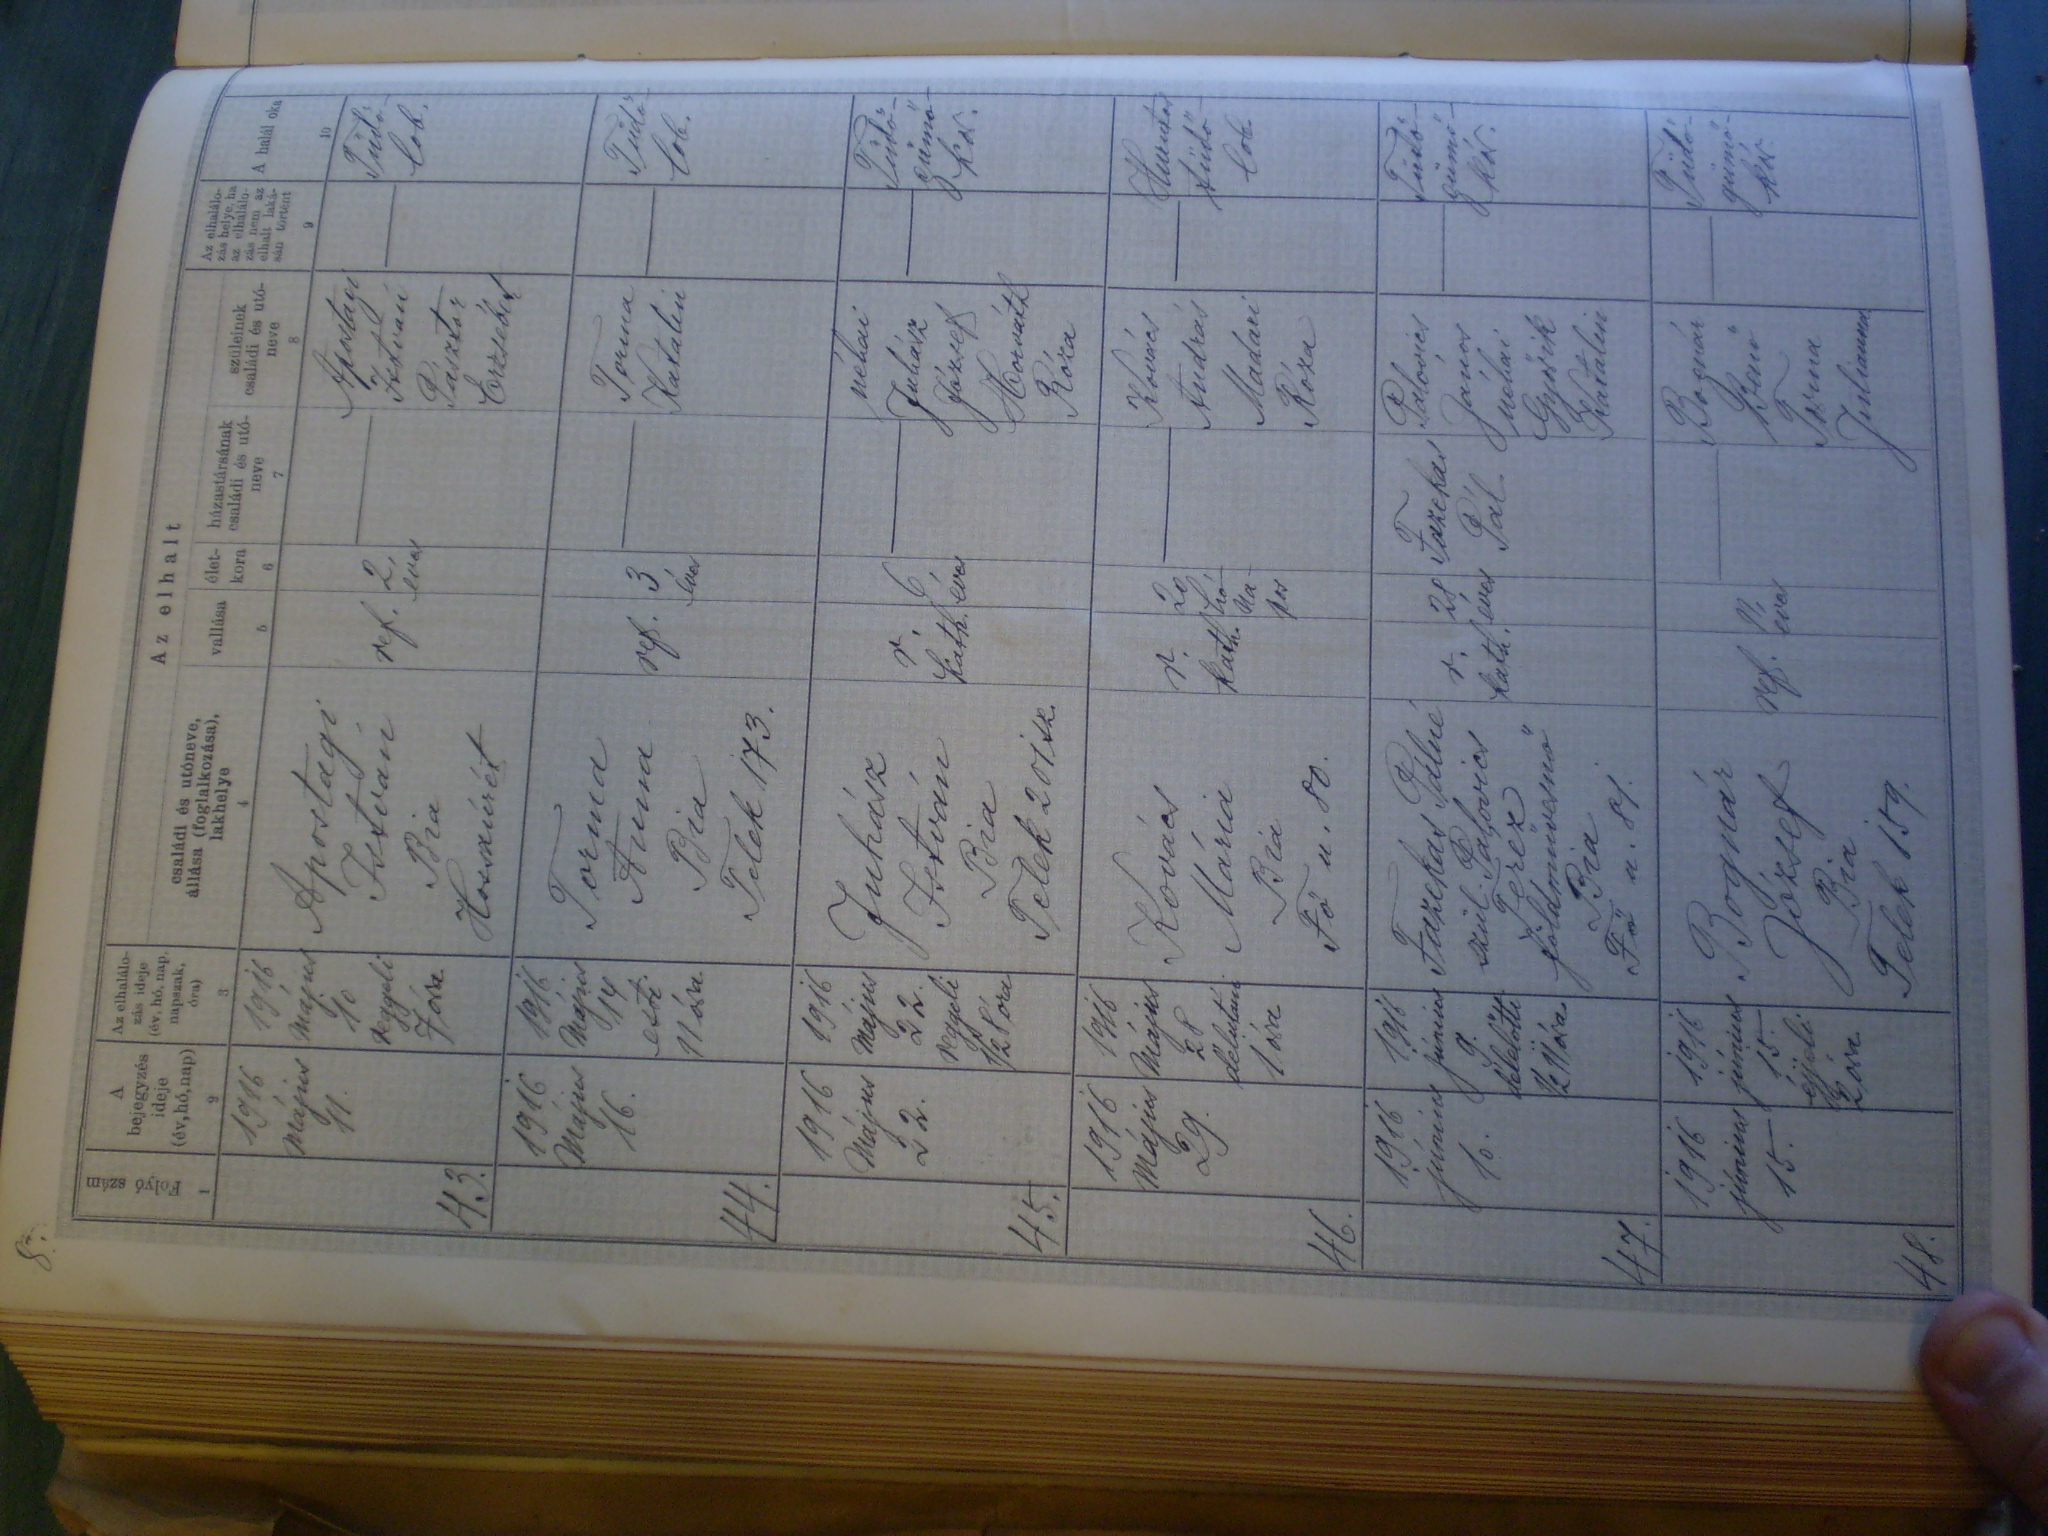 8.
Az elhalt
Folyó szám
A
bejegyzés
ideje
(év, hó, nap)
Az elhalálo-
zás ideje
(év, hó, nap,
napszak,
óra)
családi és utóneve,
állása (foglalkozása),
lakhelye
vallása
élet-
kora
házastársának
családi és utó-
neve
szüleinek
családi és utó-
neve
Az elhalálo-
zás helye, ha
az elhalálo-
zás nem az
elhalt laká-
sán történt
A halál oka
1
2
3
4
5
6
7
8
9
10
43.
1916
Május
11.
1916
Május
10
reggeli
7 óra
Apostagi
István
Bia
ref.
2
éves
Apostagi
István
Pasztor
Erzsébet
Tüdő-
lob.
44.
1916
Május
16.
1916
Május
14
esti
11 óra
Torma
Anna
Bia
Telek 173.
ref.
3
éves
Torma
Katalin
Tüdő-
lob.
45.
1916
Május
22.
1916
Május
22.
reggeli
1/2 8 óra
Juhász
István
Bia
Telek 201
r.
kath.
6
éves
néhai
Juhász
József
Horváth
Róza
Tüdő-
gümő-
kór.
46.
1916
Május
29.
1916
Május
28
délutáni
1 óra
Kovács
Mária
Bia
Fő u. 80.
r.
kath.
20
hó-
na-
pos
Kovács
András
Madari
Róza
Hurutos
tüdő-
lob
47.
1916
június
10.
1916
június
9.
délelőtti
1/2 11 óra
Fazekas Pálné
szül. Palovics
Teréz
földművesnő
Bia
Fő u. 81.
r.
kath.
28
éves
Fazekas
Pál
Palovics
János
néhai
Katalin
Tüdő-
gümő-
kór.
48.
1916
június
15.
1916
június
15
éjjeli
2 óra
Bognár
József
Bia
Telek 159.
ref.
17
éves
Bognár
Julianna
Tüdő-
gümő-
kór.